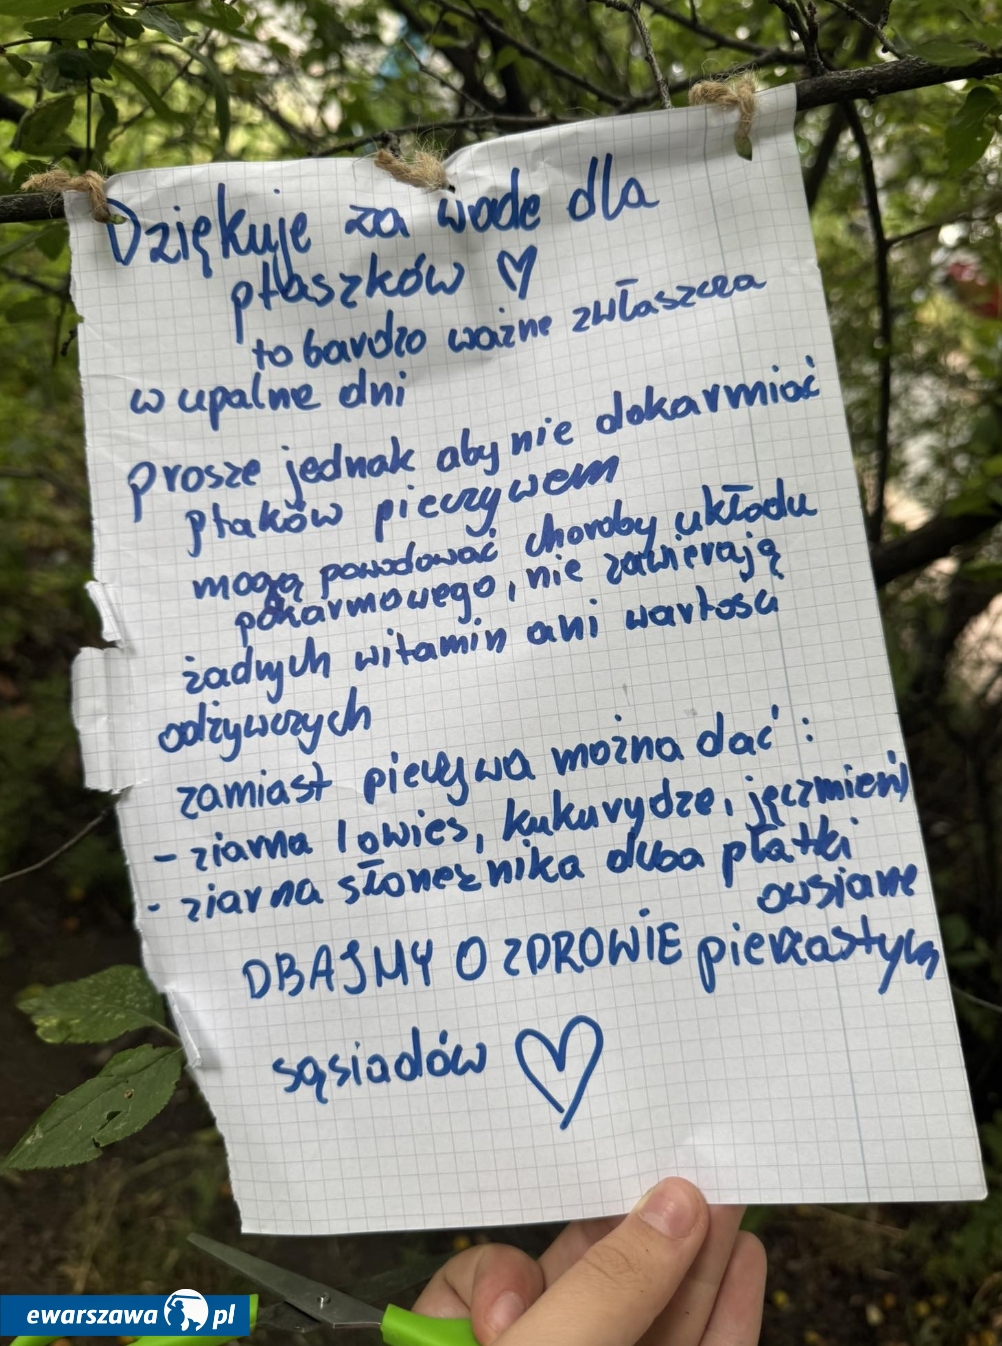 Dziękuje za wode dla
ptaszków ♡
to bardzo ważne zwłaszcza
w upalne dni
prosze jednak aby nie dokarmiać
ptaków pieczywem
mogą powodować choroby układu
pokarmowego, nie zawierają
żadnych witamin ani wartosci
odżywczych
zamiast pieczywa można dać :
- ziarna (owies, kukurydze, jęczmień)
- ziarna słonecznika płatki
owsiane
DBAJMY O ZDROWIE pierzastych
sąsiadów ♡
ewarszawa pl